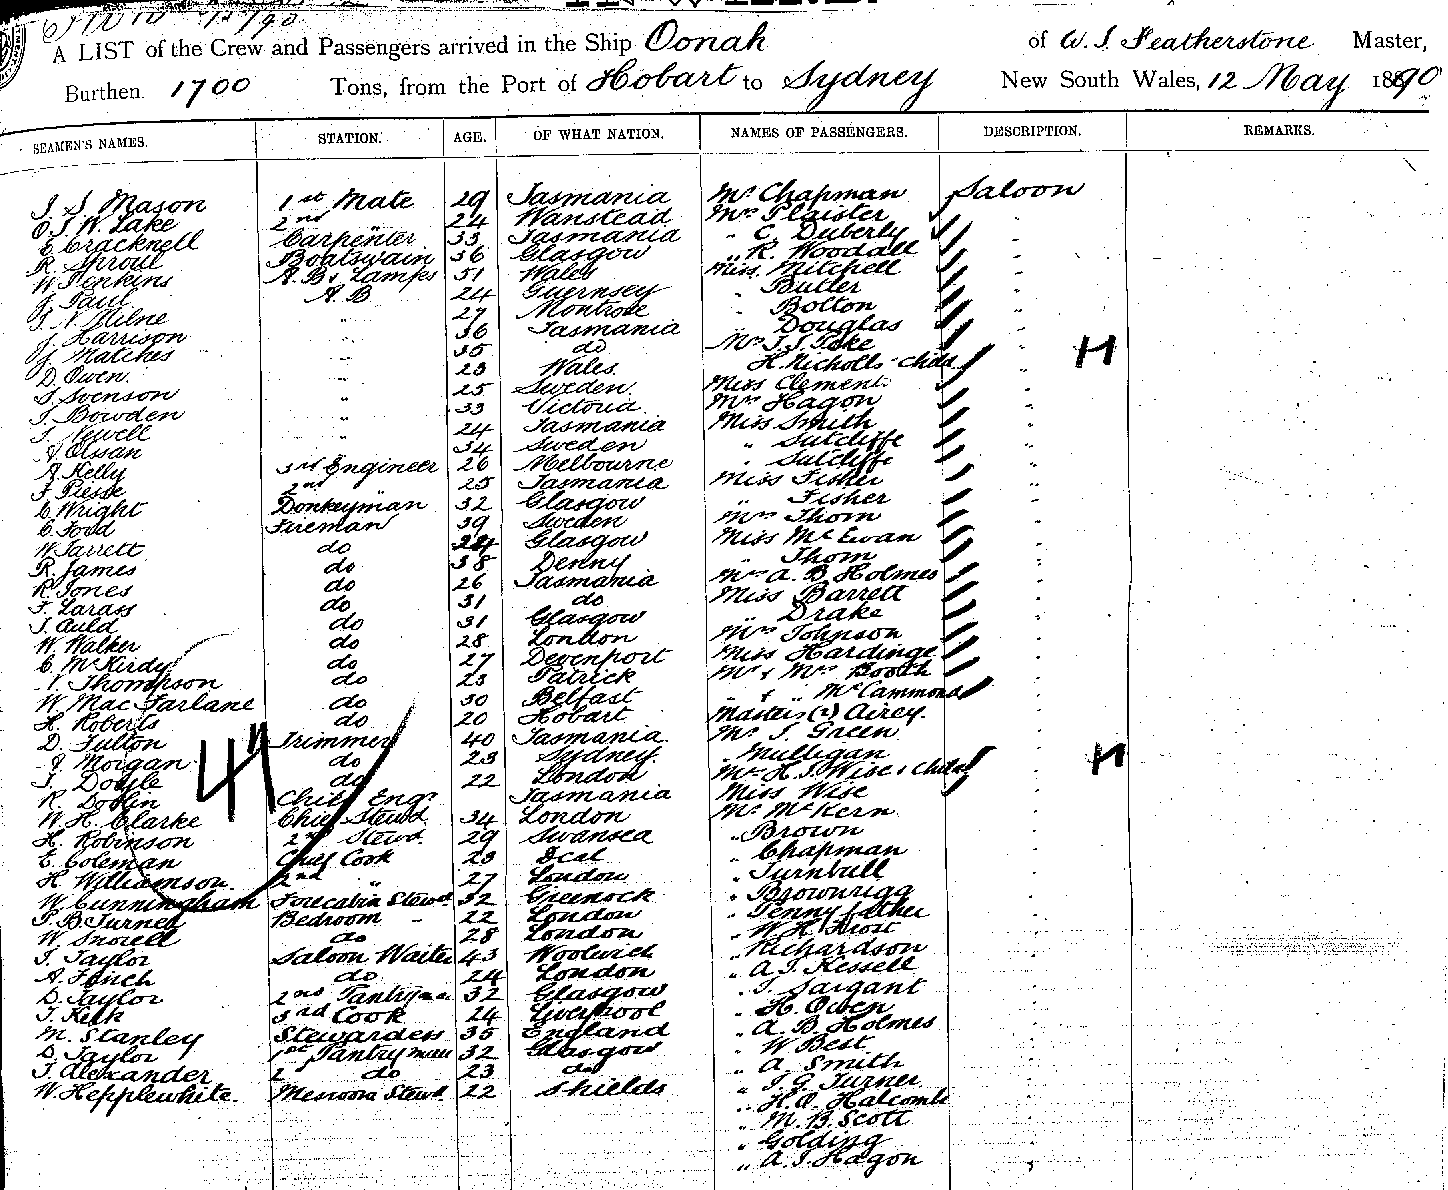 A LIST of the Crew and Passengers arrived in the Ship Oonah of W. J. Featherstone Master,
Burthen 1700 Tons, from the Port of Hobart to Sydney New South Wales, 12 May 1890
SEAMEN'S NAMES. STATION. AGE. OF WHAT NATION. NAMES OF PASSENGERS. DESCRIPTION. REMARKS.
J S Mason 1st Mate 29 Tasmania Mr Chapman Saloon
O. J. W. Lake 2nd " 24 Wanstead Mrs Plaister "
C Cracknell Carpenter 33 Tasmania " C. Duberly "
R. Sproul Boatswain 36 Glasgow " R. Woodall "
W Jenkins A. B & Lamps 51 Wales Miss Mitchell "
J Paul A B 24 Guernsey " Butler "
J. N. Milne " 27 Montrose " Bolton "
J Harrison " 36 Tasmania " Douglas "
J Matches " 35 do Mrs J. S. Toke " H
D. Owen. " 23 Wales. " H. Nicholls & Child "
J Svenson " 25 Sweden. Miss Clement. "
J. Bowden " 33 Victoria. Mrs Hagon "
J Jewell " 24 Tasmania Miss Smith "
A Olssan " 34 Sweden " Sutcliffe "
A Kelly 3rd Engineer 26 Melbourne " Sutcliffe "
F Piesse 2nd " 25 Tasmania Miss Fisher "
C Wright Donkeyman 32 Glasgow " Fisher "
C Ford Fireman 39 Sweden Mrs Thom "
W Jarrett do 24 Glasgow Miss McEwan "
R. James do 38 Denny " Thom "
R Jones do 26 Tasmania Mrs A. B. Holmes "
F. Larass do 31 do Miss Barrett "
J. Auld do 31 Glasgow " Drake "
W. Walker do 28 London Mrs Johnson "
C McKirdy do 27 Devonport Miss Hardinge "
A. Thompson do 23 Patrick Mr & Mrs Booth "
W. Mac Farlane do 30 Belfast " & " McCammond "
H. Roberts do 20 Hobart Masters (2) Airey. "
D. Fulton Trimmer 40 Tasmania. Mr J. Green "
J Morgan do 23 Sydney. " Mulligan "
J. Doyle do 22 London Mrs H. J. Wise & Child " H
R. Dobbin Chief Engr Tasmania Miss Wise "
W. H. Clarke Chief Stewd 34 London Mr McKern "
H. Robinson 2nd Stewd. 29 Swansea " Brown "
E. Coleman Chief Cook 23 Deal " Chapman "
H. Williamson. 2nd " 27 London " Turnbull "
W. Cunningham Forecabin Stewd 32 Greenock " Brownrigg "
P. B. Turner Bedroom " 22 London " Pennyfather "
W. Snoxell do 28 London " W. H. Frost "
J. Taylor Saloon Waiter 43 Woolwich " Richardson "
A. Finch do 24 London " A. J. Kessell "
D. Taylor 2nd Pantryman 32 Glasgow " J. Sargant "
J. Kirk 3rd Cook 24 Liverpool " H. Owen "
M. Stanley Stewardess 35 England " A. B. Holmes "
D. Taylor 1st Pantryman 32 Glasgow " W Best "
J. Alexander 2 do 23 do " A. Smith "
W. Hepplewhite. Messroom Stewd 22 Shields " J. G. Turner "
" H. O. Halcombe "
" M. B. Scott "
" Golding "
" A. J. Hagon "
47